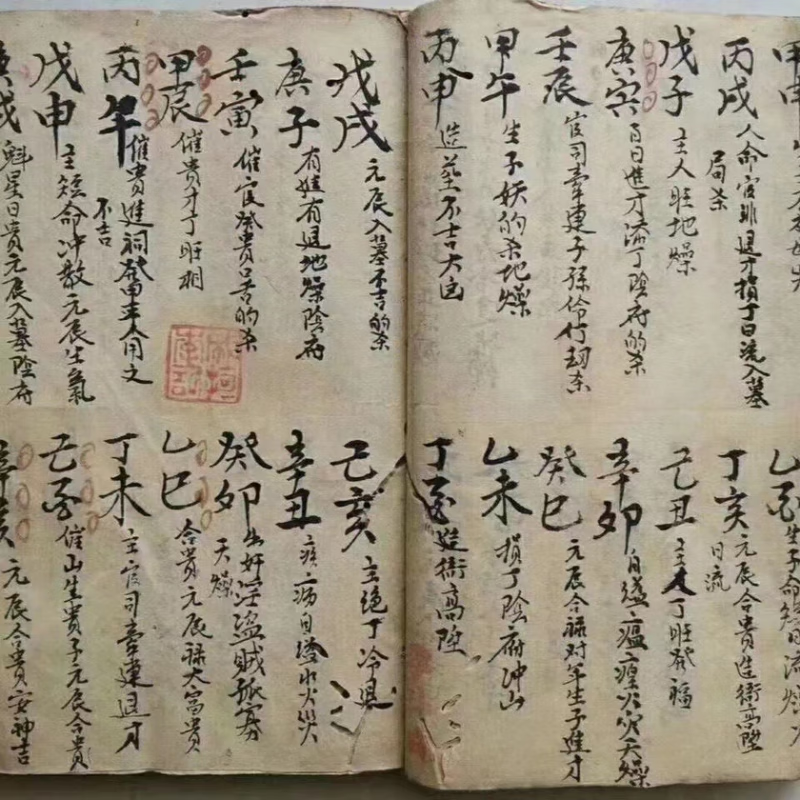 丙戌 人命官非退才損丁日流入墓
局杀
戊子 主人旺地燥
庚寅 百日進才添丁陰府的杀
壬辰 官司牽連子孫伶仃劫杀
甲午 生子妖的杀地燥
丙申 造葬不吉大凶
丁亥 元辰合貴造衙高陞
日流
己丑 主人丁旺發福
辛卯 自縊瘟瘟火灾天燥
癸巳 元辰合祿对年生子進才
乙未 損丁陰府冲山
丁酉 造衙高陞
戊戌 元辰入墓不吉的杀
庚子 有娃有退地燥陰府
壬寅 催官發貴口舌的杀
甲辰 催貴才丁旺相
丙午 催貴進祠發甲主人用之
不吉
戊申 主短命冲敗元辰生氣
庚戌 魁星日貴元辰入墓陰府
己亥 主絕丁冷退
辛丑 疾病自墜水火災
癸卯 出奸淫盜賊孤寡
天燥
乙巳 合貴元辰祿大富貴
丁未 主官司牽連退才
己酉 催山生貴子元辰合貴
辛亥 元辰合貴安神吉